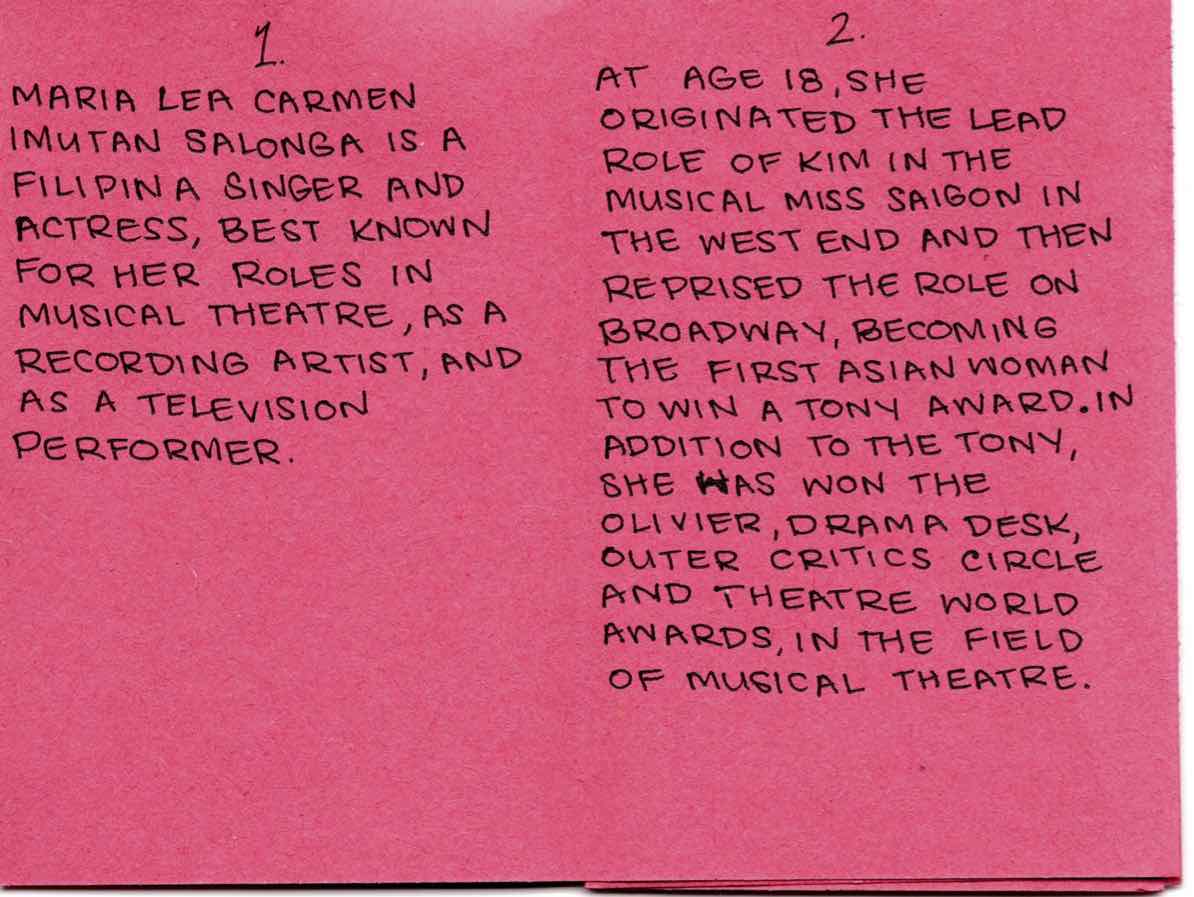 1.
MARIA LEA CARMEN
IMUTAN SALONGA IS A
FILIPINA SINGER AND
ACTRESS, BEST KNOWN
FOR HER ROLES IN
MUSICAL THEATRE, AS A
RECORDING ARTIST, AND
AS A TELEVISION
PERFORMER.
2.
AT AGE 18, SHE
ORIGINATED THE LEAD
ROLE OF KIM IN THE
MUSICAL MISS SAIGON IN
THE WEST END AND THEN
REPRISED THE ROLE ON
BROADWAY, BECOMING
THE FIRST ASIAN WOMAN
TO WIN A TONY AWARD. IN
ADDITION TO THE TONY,
SHE HAS WON THE
OLIVIER, DRAMA DESK,
OUTER CRITICS CIRCLE
AND THEATRE WORLD
AWARDS, IN THE FIELD
OF MUSICAL THEATRE.